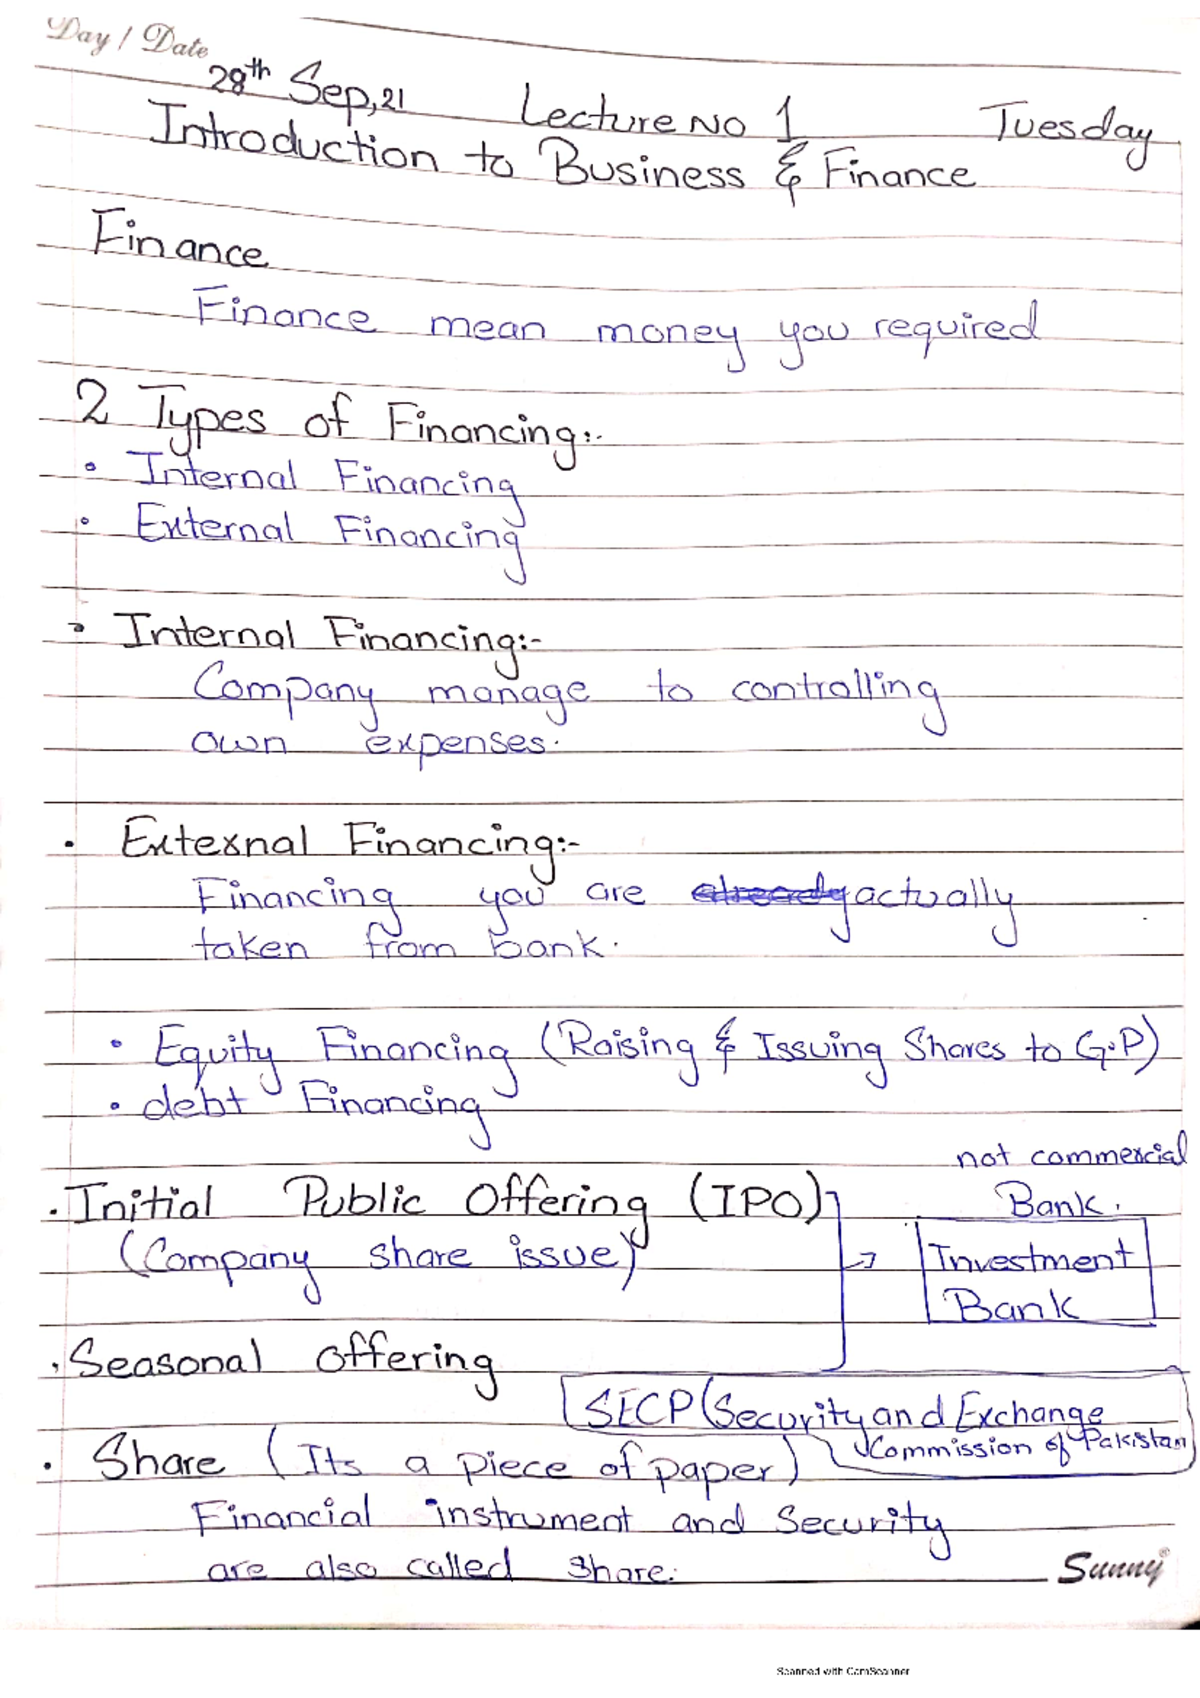 Day / Date
28th Sep,21 Lecture No 1 Tuesday
Introduction to Business & Finance
Finance
Finance mean money you required
2 Types of Financing:-
• Internal Financing
• External Financing
• Internal Financing:-
Company manage to controlling
own expenses.
• External Financing:-
Financing you are already actually
taken from bank.
• Equity Financing (Raising & Issuing Shares to G.P)
• debt Financing
not commercial
Bank.
• Initial Public Offering (IPO)
(Company share issue)
→ Investment
Bank
• Seasonal offering
SECP (Security and Exchange
Commission of Pakistan)
• Share (Its a piece of paper)
Financial instrument and Security
are also called share.
Sunny
Scanned with CamScanner